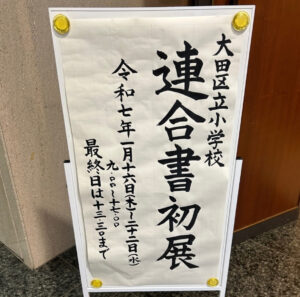 大田区立小学校
連合書初展
令和七年一月十六日(木)~二十二日(水)
九:00~十七:00
最終日は十三:三0まで